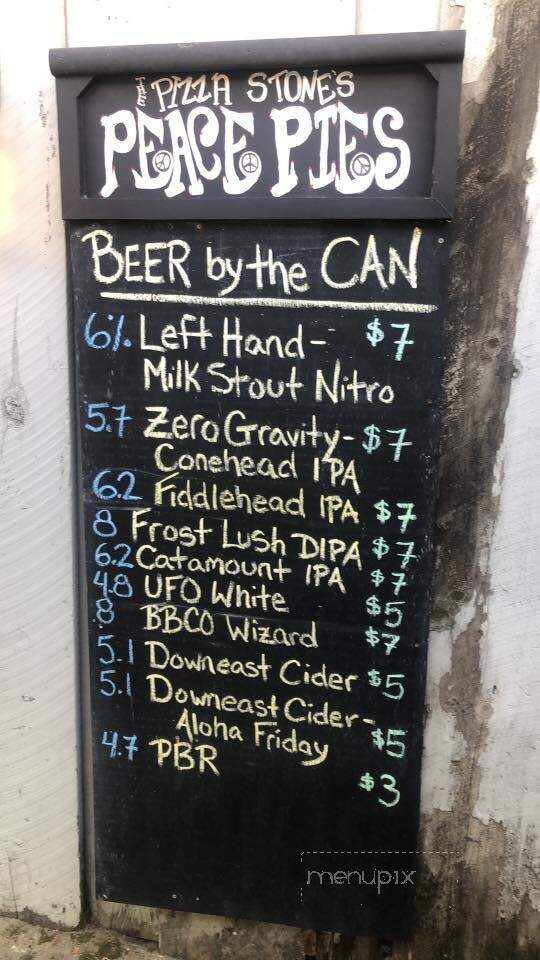 THE PIZZA STONE'S
PEACE PIES
BEER by the CAN
6% Left Hand- $7
Milk Stout Nitro
5.7 Zero Gravity- $7
Conehead IPA
6.2 Fiddlehead IPA $7
8 Frost Lush DIPA $7
6.2 Catamount IPA $7
4.8 UFO White $5
8 BBCO Wizard $7
5.1 Downeast Cider $5
5.1 Downeast Cider-
Aloha Friday $5
4.7 PBR $3
menupix